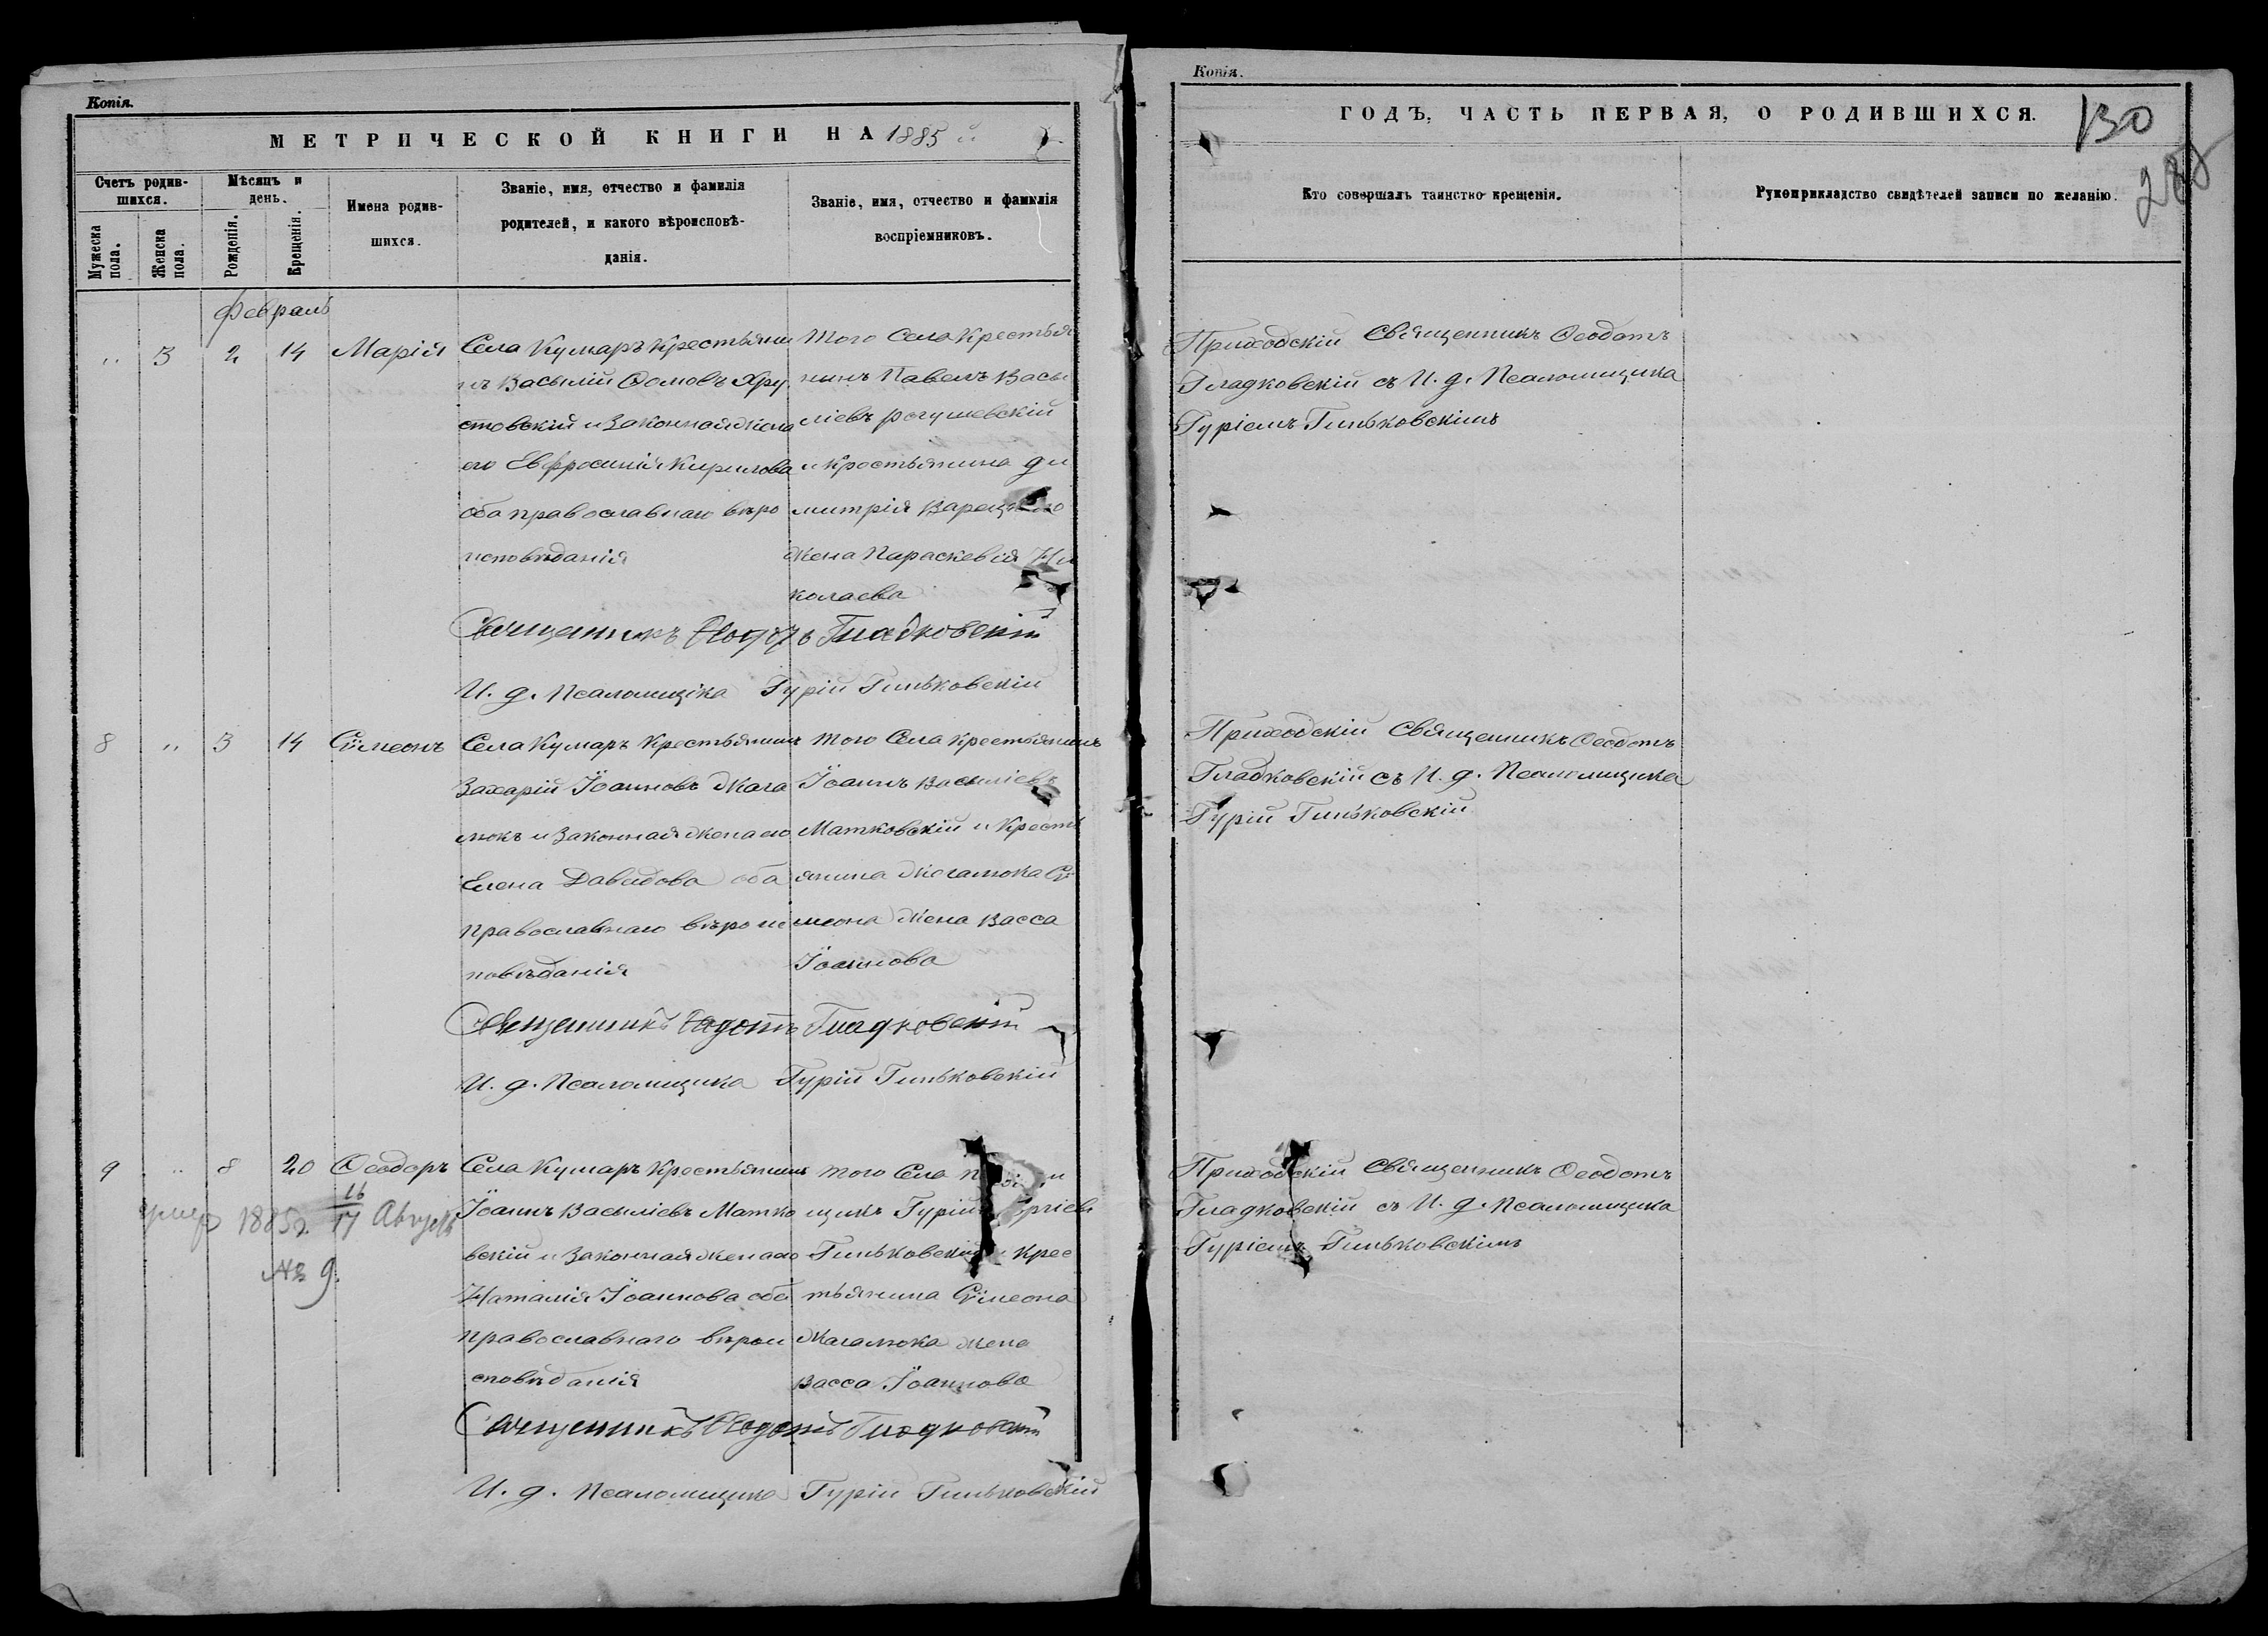 Копія.
МЕТРИЧЕСКОЙ КНИГИ НА 1885 й
Счетъ родив-
шихся.
Мѣсяцъ и
день.
Имена родив-
шихся.
Званіе, имя, отчество и фамилія
родителей, и какого вѣроисповѣ-
данія.
Званіе, имя, отчество и фамилія
воспріемниковъ.
Мужеска
пола.
Женска
пола.
Рожденія.
Крещенія.
Февраль
" 3 2 14 Марія
Села Кумаръ Крестьяни
нъ Василій Ѳомовъ Хру
стовскій и Законная Жена
его Евфросинія Кирилова
оба православнаго вѣро
исповѣданія
Того Села Крестья
нинъ Павелъ Васи
ліевъ
и Крестьянина Ди
митрія
Жена Параскевія Ни
колаева
Священникъ Ѳеодотъ Гладковскій
И. д. Псаломщика Гурій Гиньковскій
8 " 3 14 Сѵмеонъ
Села Кумаръ Крестьянинъ
Захарій Іоанновъ Жага
люкъ и Законная жена его
Елена Давидова оба
Православнаго вѣроис
повѣданія
Того Села Крестьянинъ
Іоаннъ Василіевъ
Матковскій и Кресть
янина Жагалюка Сѵ
меона Жена Васса
Іоаннова
Священникъ Ѳеодотъ Гладковскій
И. д. Псаломщика Гурій Гиньковскій
9 " 8 20 Ѳеодоръ
умеръ 1885г. 16/17 Августа
№ 9.
Села Кумаръ Крестьянинъ
Іоаннъ Василіевъ Матко
вскій и Законная жена его
Наталія Іоаннова оба
православнаго вѣрои
сповѣданія
Того Села
щикъ Гурій
Гиньковскій и Крес
тьянина Сѵмеона
Жагалюка жена
Васса Іоаннова
Священникъ Ѳеодотъ Гладковскій
И. д. Псаломщика Гурій Гиньковскій
Копія.
ГОДЪ, ЧАСТЬ ПЕРВАЯ, О РОДИВШИХСЯ.
130
Кто совершалъ таинство крещенія.
Рукоприкладство свидѣтелей записи по желанію.
Приходскій Священникъ Ѳеодотъ
Гладковскій съ И. д. Псаломщика
Гуріемъ Гиньковскимъ
Приходскій Священникъ Ѳеодотъ
Гладковскій съ И. д. Псаломщика
Гурій Гиньковскій
Приходскій Священникъ Ѳеодотъ
Гладковскій съ И. д. Псаломщика
Гуріемъ Гиньковскимъ